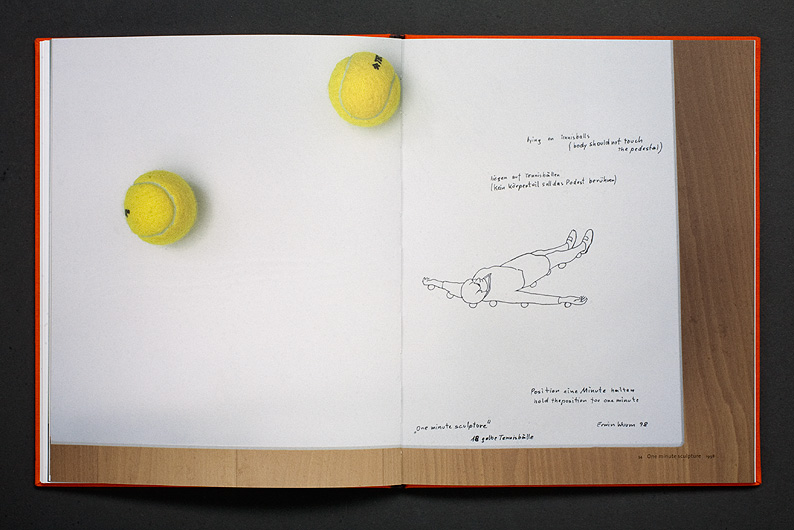 lying on Tennisballs
(body should not touch
the pedestal)
liegen auf Tennisbällen
(kein Körperteil soll das Podest berühren)
Position eine Minute halten
hold the position for one minute
„One minute sculpture"
Erwin Wurm 98
18 gelbe Tennisbälle
One minute sculpture